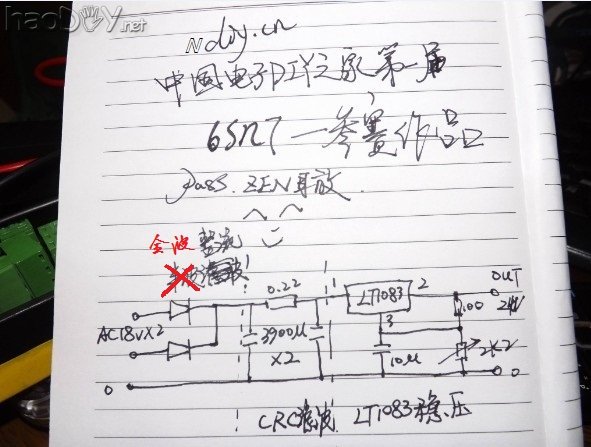 haoDIY.net
Ndiy.cn
中国电子DIY之家第一届
6SN7一参赛作品
Pass ZEN耳放
全波整流
LT1083
2
OUT
24V
0.22
100
3
AC18V×2
3900μ
×2
10μ
2K2
0
0
CRC滤波 LT1083稳压